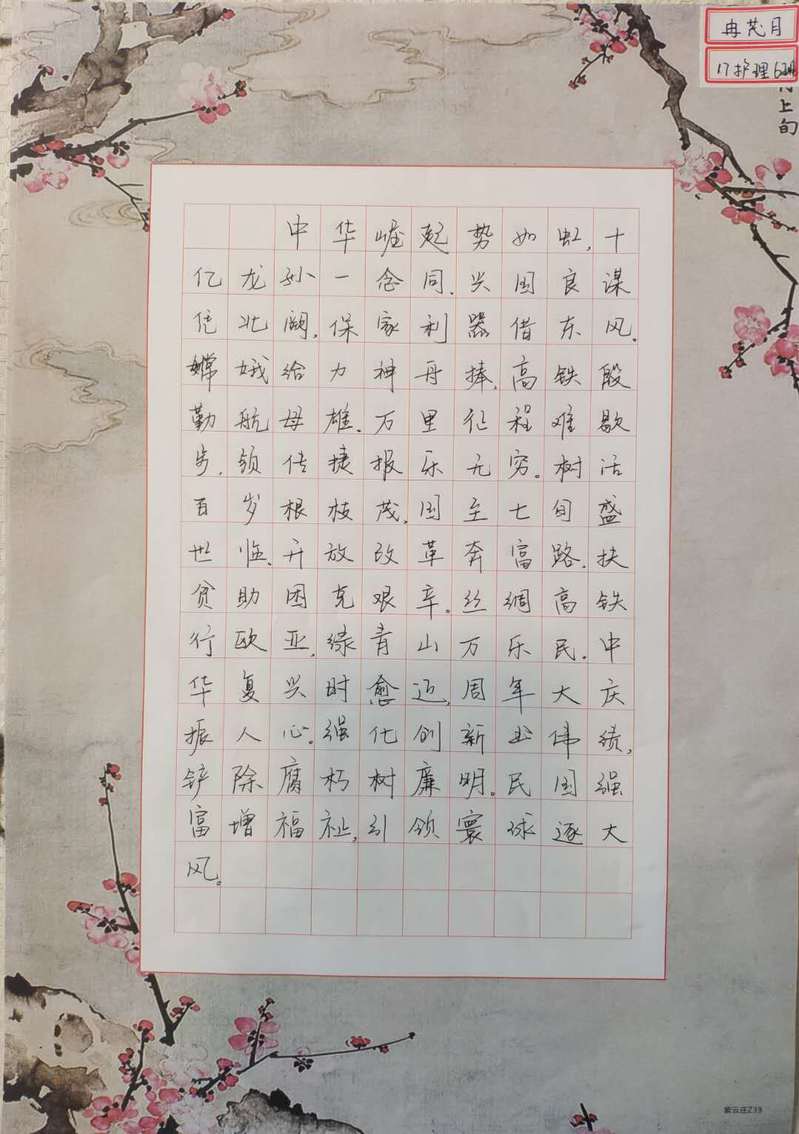 冉茂月
17护理6班
上旬
中华崛起势如虹，十
亿龙孙一念同。兴国良谋
凭北阙，保家利器借东风。
嫦娥给力神舟捧，高铁殷
勤航母雄。万里征程难歇
步，领传捷报乐无穷。树活
百岁根枝茂，国至七旬盛
世临。开放改革奔富路，扶
贫助困克艰辛。丝绸高铁
行欧亚，绿青山万乐民。中
华复兴时愈近，周年大庆
振人心。强化创新业伟绩，
铲除腐朽树廉明。民国强
富增福祉，引领寰球逐大
风。
紫云庄Z39